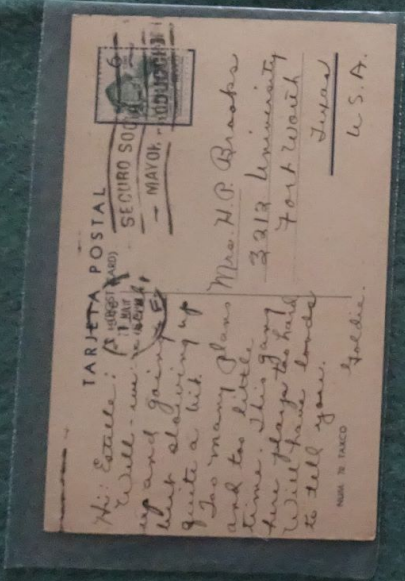 TARJETA POSTAL
(POST CARD)
SEGURO SOCIAL
MAYOR PRODUCCION
Hi: Estelle:
Well - we're
up and going
but slowing up
quite a bit.
Too many plans
and too little
time. This gang
here plays too hard
Will have loads
to tell you.
Goldie.
Mrs. H. P. Brooks
3212 University
Fort Worth
Texas
U.S.A.
NUM. 78 TAXCO